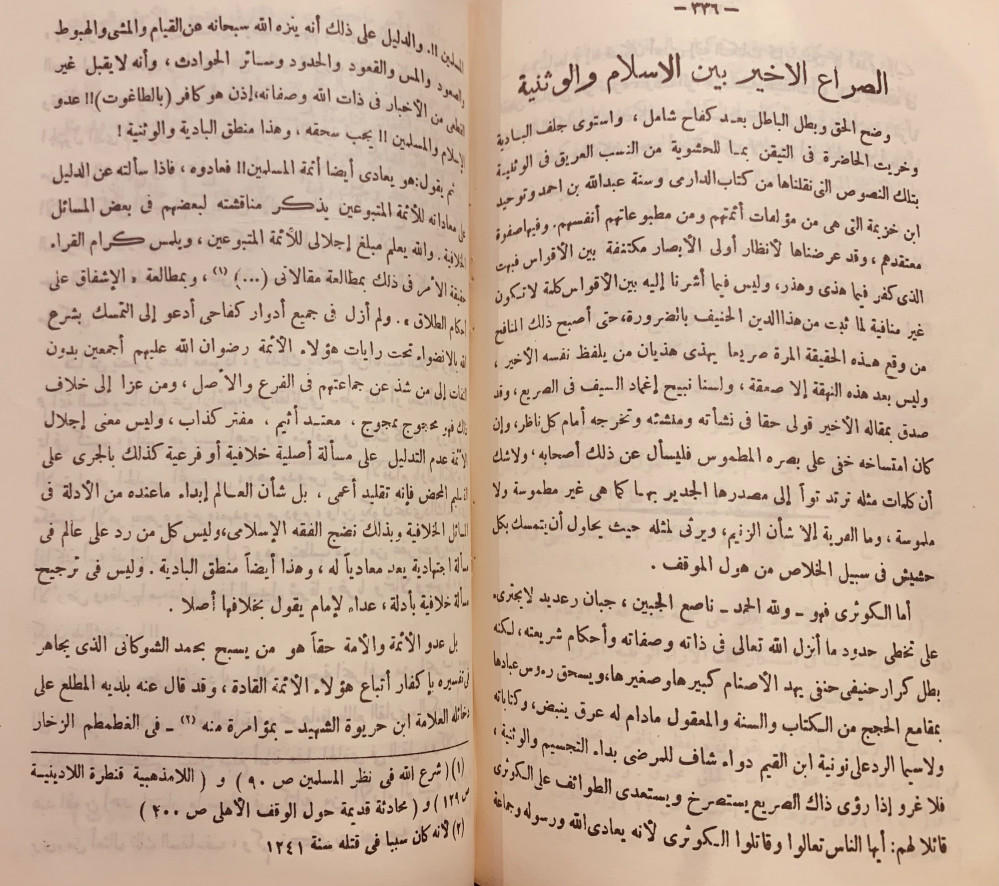 — ٣٣٦ —
الصراع الاخير بين الاسلام والوثنية
وضح الحق وبطل الباطل بعد كفاح شامل ، واستوى جلف البادية
وخريت الحاضرة فى التيقن بما للحشوية من النسب العريق فى الوثنية
بتلك النصوص التى نقلناها من كتاب الدارمى وسنة عبدالله بن احمد وتوحيد
ابن خزيمة التى هى من مؤلفات أئمتهم ومن مطبوعاتهم أنفسهم. وفيها صفوة
معتقدهم ، وقد عرضناها لأنظار أولى الأبصار مكتنفة بين الأقواس فبهت
الذى كفر فيما هذى وهذر، وليس فيما أشرنا إليه بين الأقواس كلمة لا تكون
غير منافية لما ثبت من هذا الدين الحنيف بالضرورة،حتى أصبح ذلك المنافح
من وقع هذه الحقيقة المرة صريعا يهذى هذيان من يلفظ نفسه الأخير ،
وليس بعد هذه النهقة إلا صعقة ، ولسنا نبيح إغماد السيف فى الصريع، وقد
صدق بمقاله الأخير قولى حقا فى نشأته ومنشئه وتخرجه أمام كل ناظر، وإن
كان امتساخه خفى على بصره المطموس فليسأل عن ذلك أصحابه، ولاشك
أن كلمات مثله ترتد توأ إلى مصدرها الجدير بها كما هى غير مطموسة ولا
ملموسة ، وما الفرية إلا شأن الزنيم، ويرثى لمثله حيث يحاول أن يتمسك بكل
حشيش فى سبيل الخلاص من هول الموقف .
أما الكوثرى فهو ـ ولله الحمد ـ ناصع الجبين ، جبان رعديد لا يجترىء
على تخطى حدود ما أنزل الله تعالى فى ذاته وصفاته وأحكام شريعته، لكنه
بطل كرار حنيفى حنفى يهد الأصنام كبيرها وصغيرها،ويسحق رءوس عبادها
بمقامع الحجج من الكتاب والسنة والمعقول مادام له عرق ينبض، وكتاباته
ولاسيما الرد على نونية ابن القيم دواء شاف للمرضى بداء التجسيم والوثنية ،
فلا غرو إذا رؤى ذاك الصريع يستصرخ ويستعدى الطوائف على الكوثرى
قائلا لهم: أيها الناس تعالوا وقاتلوا الكوثرى لأنه يعادى الله ورسوله وجماعة
المسلمين !!. والدليل على ذلك أنه ينزه الله سبحانه عن القيام والمشى والهبوط
والصعود والمس والقعود والحدود وسائر الحوادث ، وأنه لا يقبل غير
القطعى من الأخبار فى ذات الله وصفاته،إذن هو كافر (بالطاغوت)!! عدو
الإسلام والمسلمين !! يجب سحقه ، وهذا منطق البادية والوثنية !
ثم يقول:هو يعادى أيضا أئمة المسلمين!! فعادوه ، فاذا سألته عن الدليل
على معاداته للأئمة المتبوعين يذكر مناقشته لبعضهم فى بعض المسائل
الخلافية . والله يعلم مبلغ إجلالى للأئمة المتبوعين ، ويلمس كرام القراء
حقيقة الأمر فى ذلك بمطالعة مقالاتى (...) (١) ، وبمطالعة « الإشفاق على
أحكام الطلاق » . ولم أزل فى جميع أدوار كفاحى أدعو إلى التمسك بشرع
الله بالانضواء تحت رايات هؤلاء الأئمة رضوان الله عليهم أجمعين بدون
التفات إلى من شذ عن جماعتهم فى الفرع والأصل ، ومن عزا إلى خلاف
ذلك فهو محجوج ممجوج ، معتد أثيم ، مفتر كذاب، وليس معنى إجلال
الأئمة عدم التدليل على مسألة أصلية خلافية أو فرعية كذلك بالجرى على
التسليم المحض فإنه تقليد أعمى ، بل شأن العالم إبداء ماعنده من الأدلة فى
المسائل الخلافية وبذلك نضج الفقه الإسلامى،وليس كل من رد على عالم فى
مسألة اجتهادية يعد معادياً له ، وهذا أيضاً منطق البادية . وليس فى ترجيح
مسألة خلافية بأدلة ، عداء لإمام يقول بخلافها أصلا .
بل عدو الأئمة والأمة حقاً هو من يسبح بحمد الشوكانى الذى يجاهر
فى تفسيره بإكفار أتباع هؤلاء الأئمة القادة ، وقد قال عنه بلديه المطلع على
دخائله العلامة ابن حريوة الشهيد ـ بمؤامرة منه (٢) ـ فى الغطمطم الزخار
(١) ( شرع الله فى نظر المسلمين ص ٩٠ ) و ( اللامذهبية قنطرة اللادينية
ص ١٢٩ ) و ( محادثة قديمة حول الوقف الأهلى ص ٢٠٠ )
(٢) لأنه كان سببا فى قتله سنة ١٢٤١